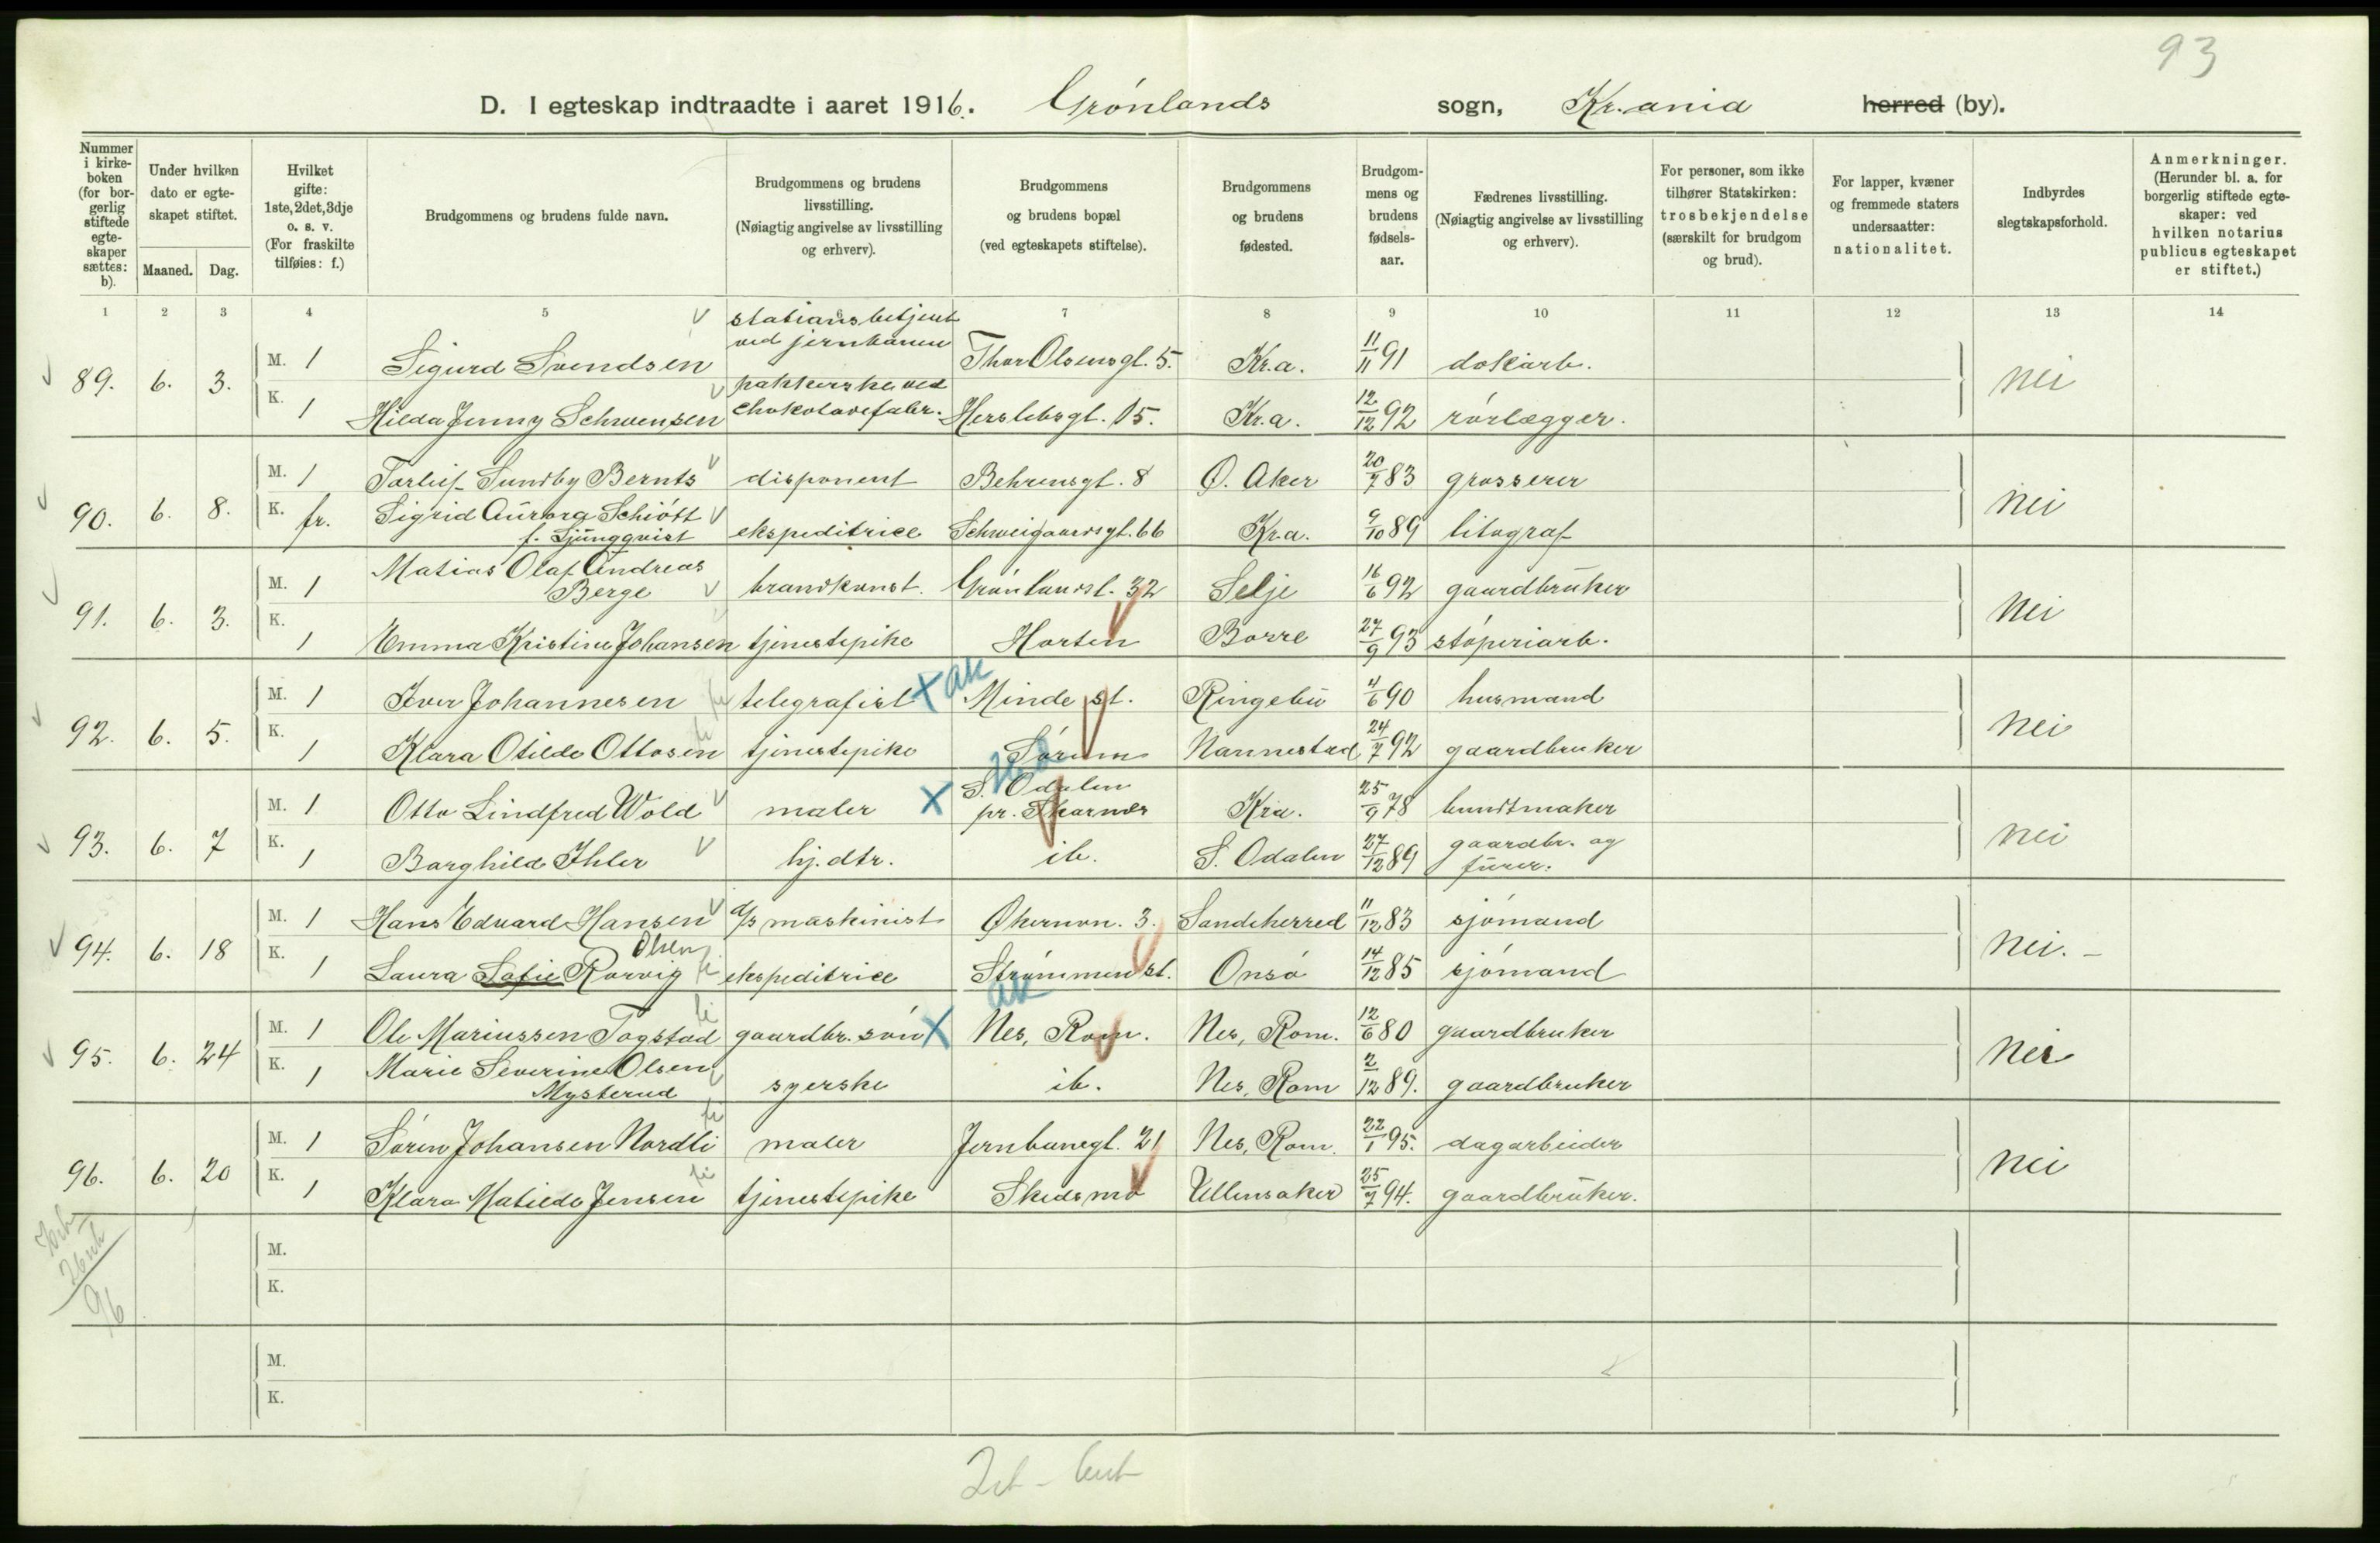 93
D. I egteskap indtraadte i aaret 1916. Grónlands sogn, Kr.ania herred (by).
Nummer i kirkeboken (for borgerlig stiftede egteskaper sættes: b).
Under hvilken dato er egteskapet stiftet.
Maaned. Dag.
Hvilket gifte: 1ste, 2det, 3dje o. s. v. (For fraskilte tilføies: f.)
Brudgommens og brudens fulde navn.
Brudgommens og brudens livsstilling. (Nøiagtig angivelse av livsstilling og erhverv).
Brudgommens og brudens bopæl (ved egteskapets stiftelse).
Brudgommens og brudens fødested.
Brudgommens og brudens fødselsaar.
Fædrenes livsstilling. (Nøiagtig angivelse av livsstilling og erhverv).
For personer, som ikke tilhører Statskirken: trosbekjendelse (særskilt for brudgom og brud).
For lapper, kvæner og fremmede staters undersaatter: nationalitet.
Indbyrdes slegtskapsforhold.
Anmerkninger. (Herunder bl. a. for borgerlig stiftede egteskaper: ved hvilken notarius publicus egteskapet er stiftet.)
1 2 3 4 5 6 7 8 9 10 11 12 13 14
89. 6. 3. M. 1 Sigurd Svendsen stationsbetjent ved jernbanen Thor Olsensgt. 5. Kr.a. 11/11 91 dokarb. nei
K. 1 Hilda Jenny Schwensen pakkerske ved chokoladefabr. Herslebsgt. 15. Kr.a. 12/12 92 rórlægger.
90. 6. 8. M. 1 Torleif Sundby Bernts disponent Behrensgt. 8 Ø. Aker 20/7 83 grosserer nei
K. fr. Sigrid Aurora Schiött f. Ljungqvist ekspeditrice Schweigaardsgt. 66 Kr.a. 9/10 89 litograf
91. 6. 3. M. 1 Matias Olaf Andreas Berge brandkonst. Grónlandsl. 32 Selje 16/6 92 gaardbruker nei
K. 1 Emma Kristine Johansen tjenestepike Horten Borre 27/9 93 stóperiarb.
92. 6. 5. M. 1 Iver Johannesen telegrafist X ak Minde st. Ringebu 4/6 90 husmand nei
K. 1 Klara Otilde Ottosen tjenestepike Sórum Nannestad 24/7 92 gaardbruker
93. 6. 7 M. 1 Otto Lindfred Wold maler X S. Odalen pr. Skarnes Kra. 25/9 78 buntmaker nei
K. 1 Borghild Ihler hj. dtr. ib. S. Odalen 27/12 89 gaardbr. og furer.
94. 6. 18 M. 1 Hans Edvard Hansen maskinist Økernvn. 3. Sandeherred 11/12 83 sjómand nei. -
K. 1 Laura Sofie Rorvig Olsen ekspeditrice Strómmen st. Onsó 14/12 85 sjómand
95. 6. 24 M. 1 Ole Mariussen Togstad gaardbr. són X ak Nes, Rom. Nes, Rom. 12/6 80 gaardbruker nei
K. 1 Marie Severine Olsen Mysterud syerske ib. Nes, Rom 2/12 89. gaardbruker
96. 6. 20 M. 1 Sóren Johansen Nordli maler Jernbanegt. 21 Nes, Rom. 22/1 95. dagarbeider nei
K. 1 Klara Matilde Jensen tjenestepike Skedsmo Ullensaker 25/7 94. gaardbruker.
M.
K.
96
M.
K.